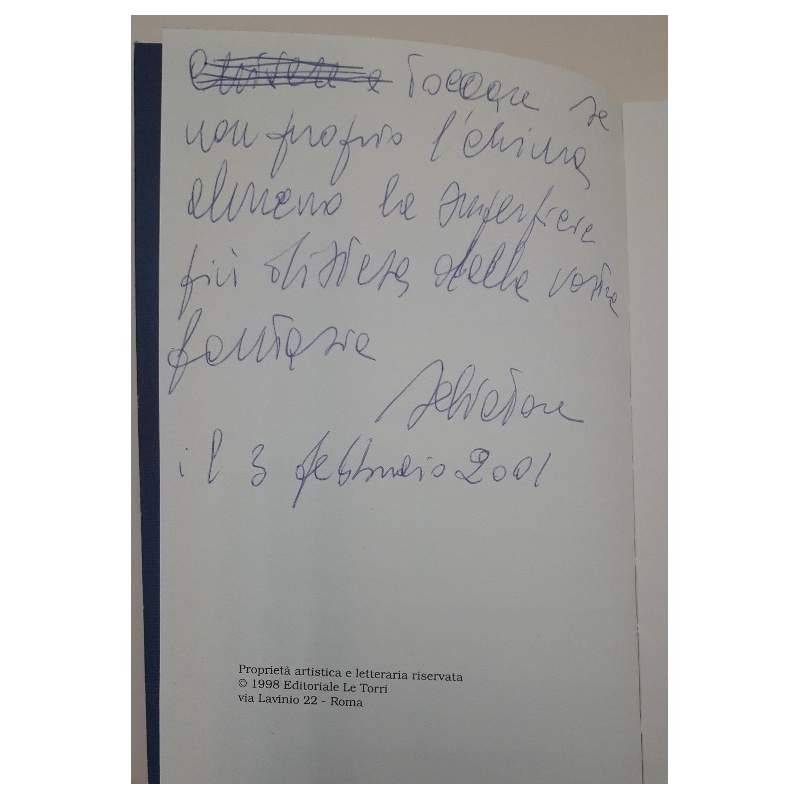 toccare se
non proprio l'anima
almeno la superficie
più distesa della vostra
fantasia
Salvatore
il 3 febbraio 2001
Proprietà artistica e letteraria riservata
© 1998 Editoriale Le Torri
via Lavinio 22 - Roma